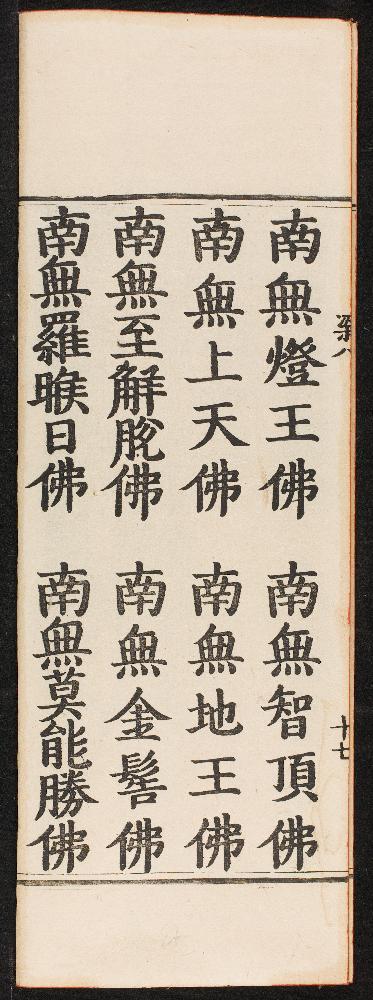 南無燈王佛
南無智頂佛
南無上天佛
南無地王佛
南無至解脫佛
南無金髻佛
南無羅睺日佛
南無莫能勝佛
十七